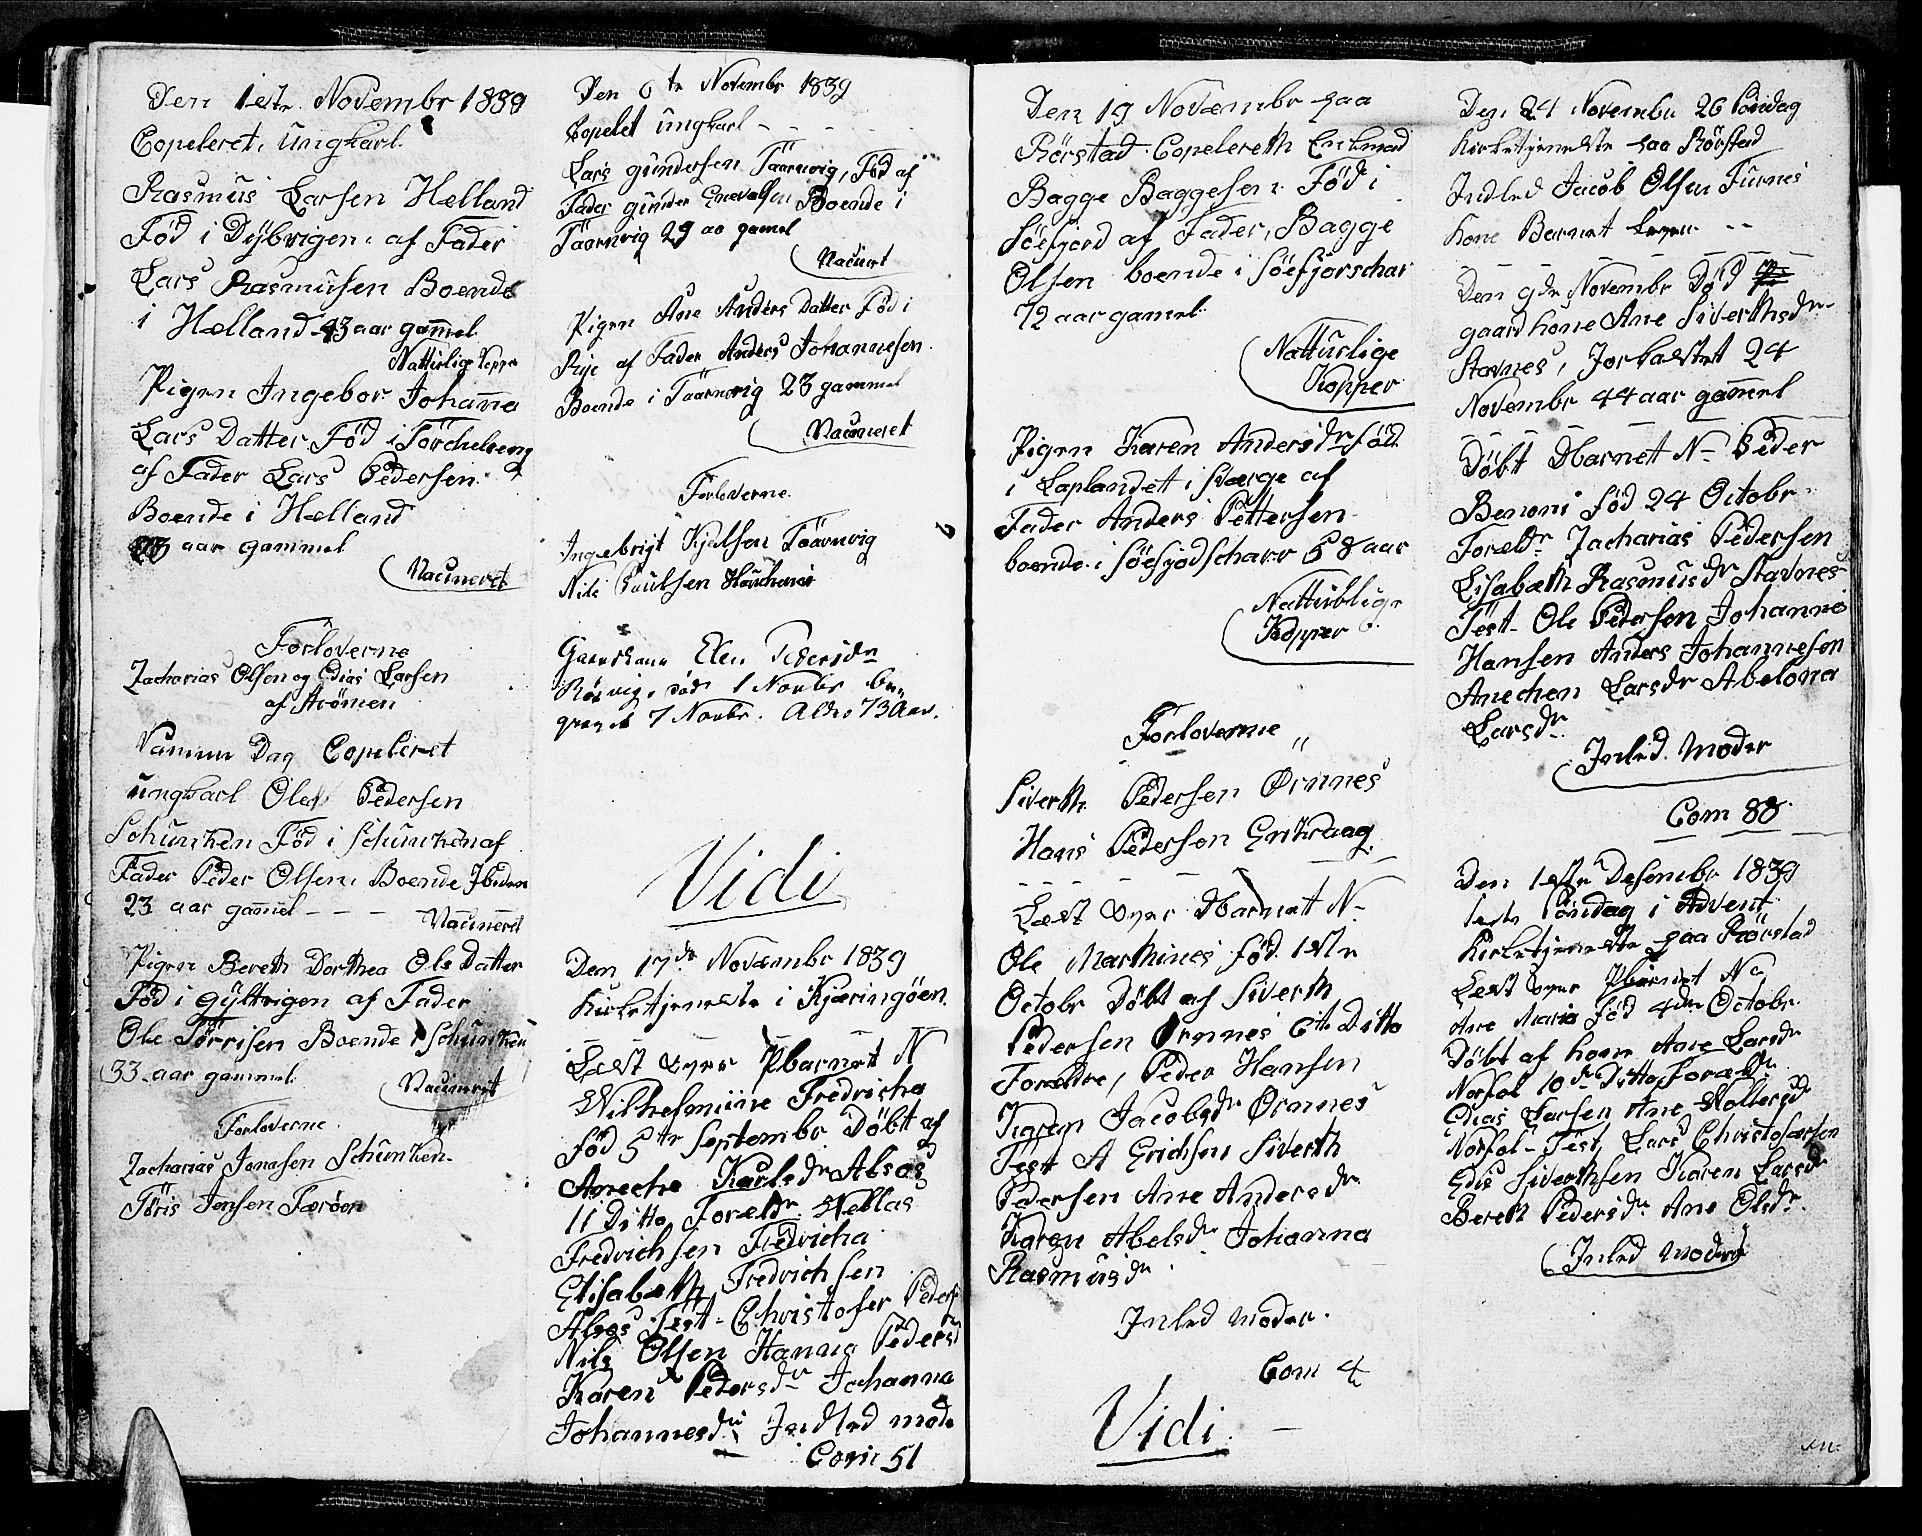 Den 1ste Novembr 1839
Copeleret, Ungkarl
Rasmus Larsen Hælland
Fød i Dybvigen, af Fader
Lars Rasmusen Boende
i Hælland 43 aar gam̄el
Natturlige Kopper
Pigen Ingebor Johan̄a
Lars Datter Fød i
af Fader Lars Pedersen
Boende i Hælland
aar gammel
Vacineret
Forloverne
Zacharias Olsen og Edias Larsen
af Strømen
Samme Dag Copeleret
ungkarl Ole Pedersen
Schunken Fød i Schunken af
Fader Peder Olsen, Boende Ibiden
23 aar gam̄el - - - Vacineret
Pigen Bereth Dorthea Ols Datter
Fød i Gyltvigen af Fader
Ole Tørrisen Boende i Schunken
33 aar gammel
Vacineret
Forloverne
Zacharias Jonasen Schunken
Tøris Jensen Færøen
Den 6te Novembr 1839
Copelet ungkarl - - - -
Lars Gundersen Taarnvig, Fød af
Fader Gunder Enevalsen Boende i
Taarnvig 29 aa gamel
Vacinet
Pigen Ane Anders Datter Fød i
Rye af Fader Anders Johannesen
Boende i Taarnvig 23 gammel
Vacineret
Forloverne
Ingebrigt Kjelsen Taarnvig
Nils Paulsen
Elen Pedersdr
Rørvig, død 1 Novbr be-
gravet 7 Novbr. Alder 73 Aar.
Vidi
Den 17de Novembr 1839
Kirketjeneste i Kjæringøen
Læst over Pbarnet N
Wilhelmine Fredricha
Fød 5te Septembr Døbt af
Aneche Karlsdr Alsos
11 Ditto Foreldr Neklas
Fredrichsen Fredricha
Elisabeth Fredrichsen
Alsos Test - Christofer Peders
Nils Olsen Hanna Peders
Karen Pedersdr Johanna
Johannesdr Indled mode
Com 51
Den 19 Novembr paa
Rørstad Copelereth Enkmad
Bagge Baggesen Fød i
Søefjord af Fader, Bagge
Olsen boende i Søefjorschar
72 aar gamel
Natturlige
Kopper
Pigen Karen Andersdr Fød
i Laplandet i Sværge af
Fader Anders Pettersen
boende i Søefjodscharr 58 aar
Natturlige
Kopper
Forloverne
Siverth Pedersen Ørnnes
Hans Pedersen Enkraag
Læst over DBarnet N-
Ole Marthines, Fød 1ste
Octobr Døbt af Siverth
Pedersen Ørnnes 6te Ditto
Foreldre, Peder Hansen
Karen Jacobsdr Ørnnes
Test A Erichsen Siverth
Pedersen Ane Andersdr
Karen Abelsdr Johanna
Rasmusdr
Inled Moder.
Com 4
Vidi
Den 24 Novembr 26 Søndag
Kirketjeneste paa Rørstad
Indled Jacob Olsen Furnes
Kone Barnet
Den 9de Novembr Død
gaardkone Ane Siverthsdr
Stavnes, Jorkastet 24
Novembr 44 aar gam̄el
Døbt DBarnet N- Peder
Benoni Fød 24 Octobr
Foreldr Zacharias Pedersen
Lisabeth Rasmusdr Stavnes
Test- Ole Pedersen Johannes
Hansen Anders Johannesen
Anechen Larsdr Abelona
Larsdr
Inled Moder
Com 88
Den 1ste Desembr 1839
1ste Søndag i Advent
Kirketjeneste paa Rørstad
Læst over Pbarnet N
Ane Maria Fød 4de Octobr
Døbt af kone Ane Larsdr
Norfol 10de Ditto, Foreldr
Edias Larsen Ane Holtersdr
Norfol - Test, Lars Christofersen
Edis Siverthsen Karen Larsdr
Bereth Pedersdr Ane Olsdr
Inled Moder